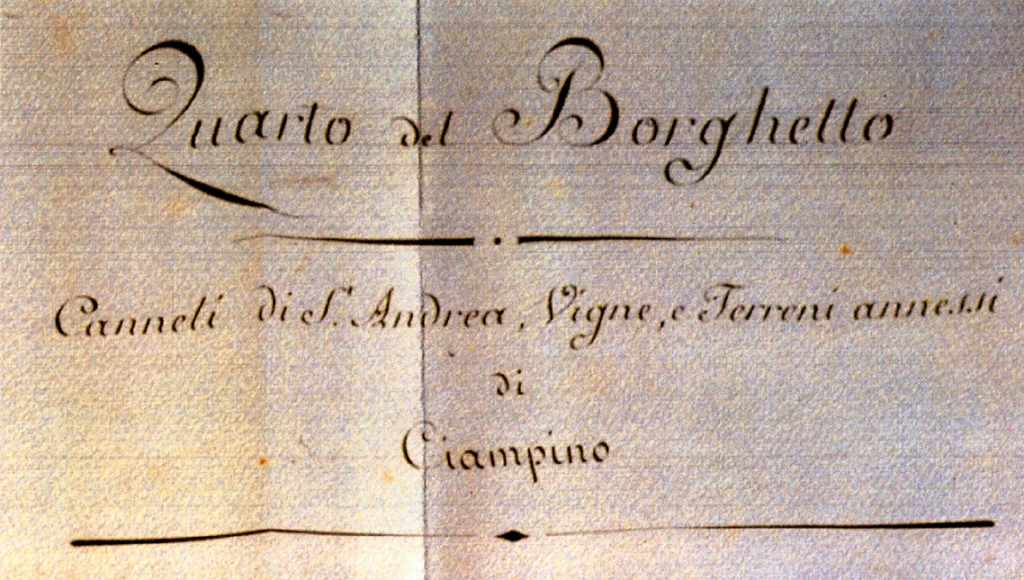 Quarto del Borghetto
Canneti di S. Andrea, Vigne, e Terreni annessi
di
Ciampino